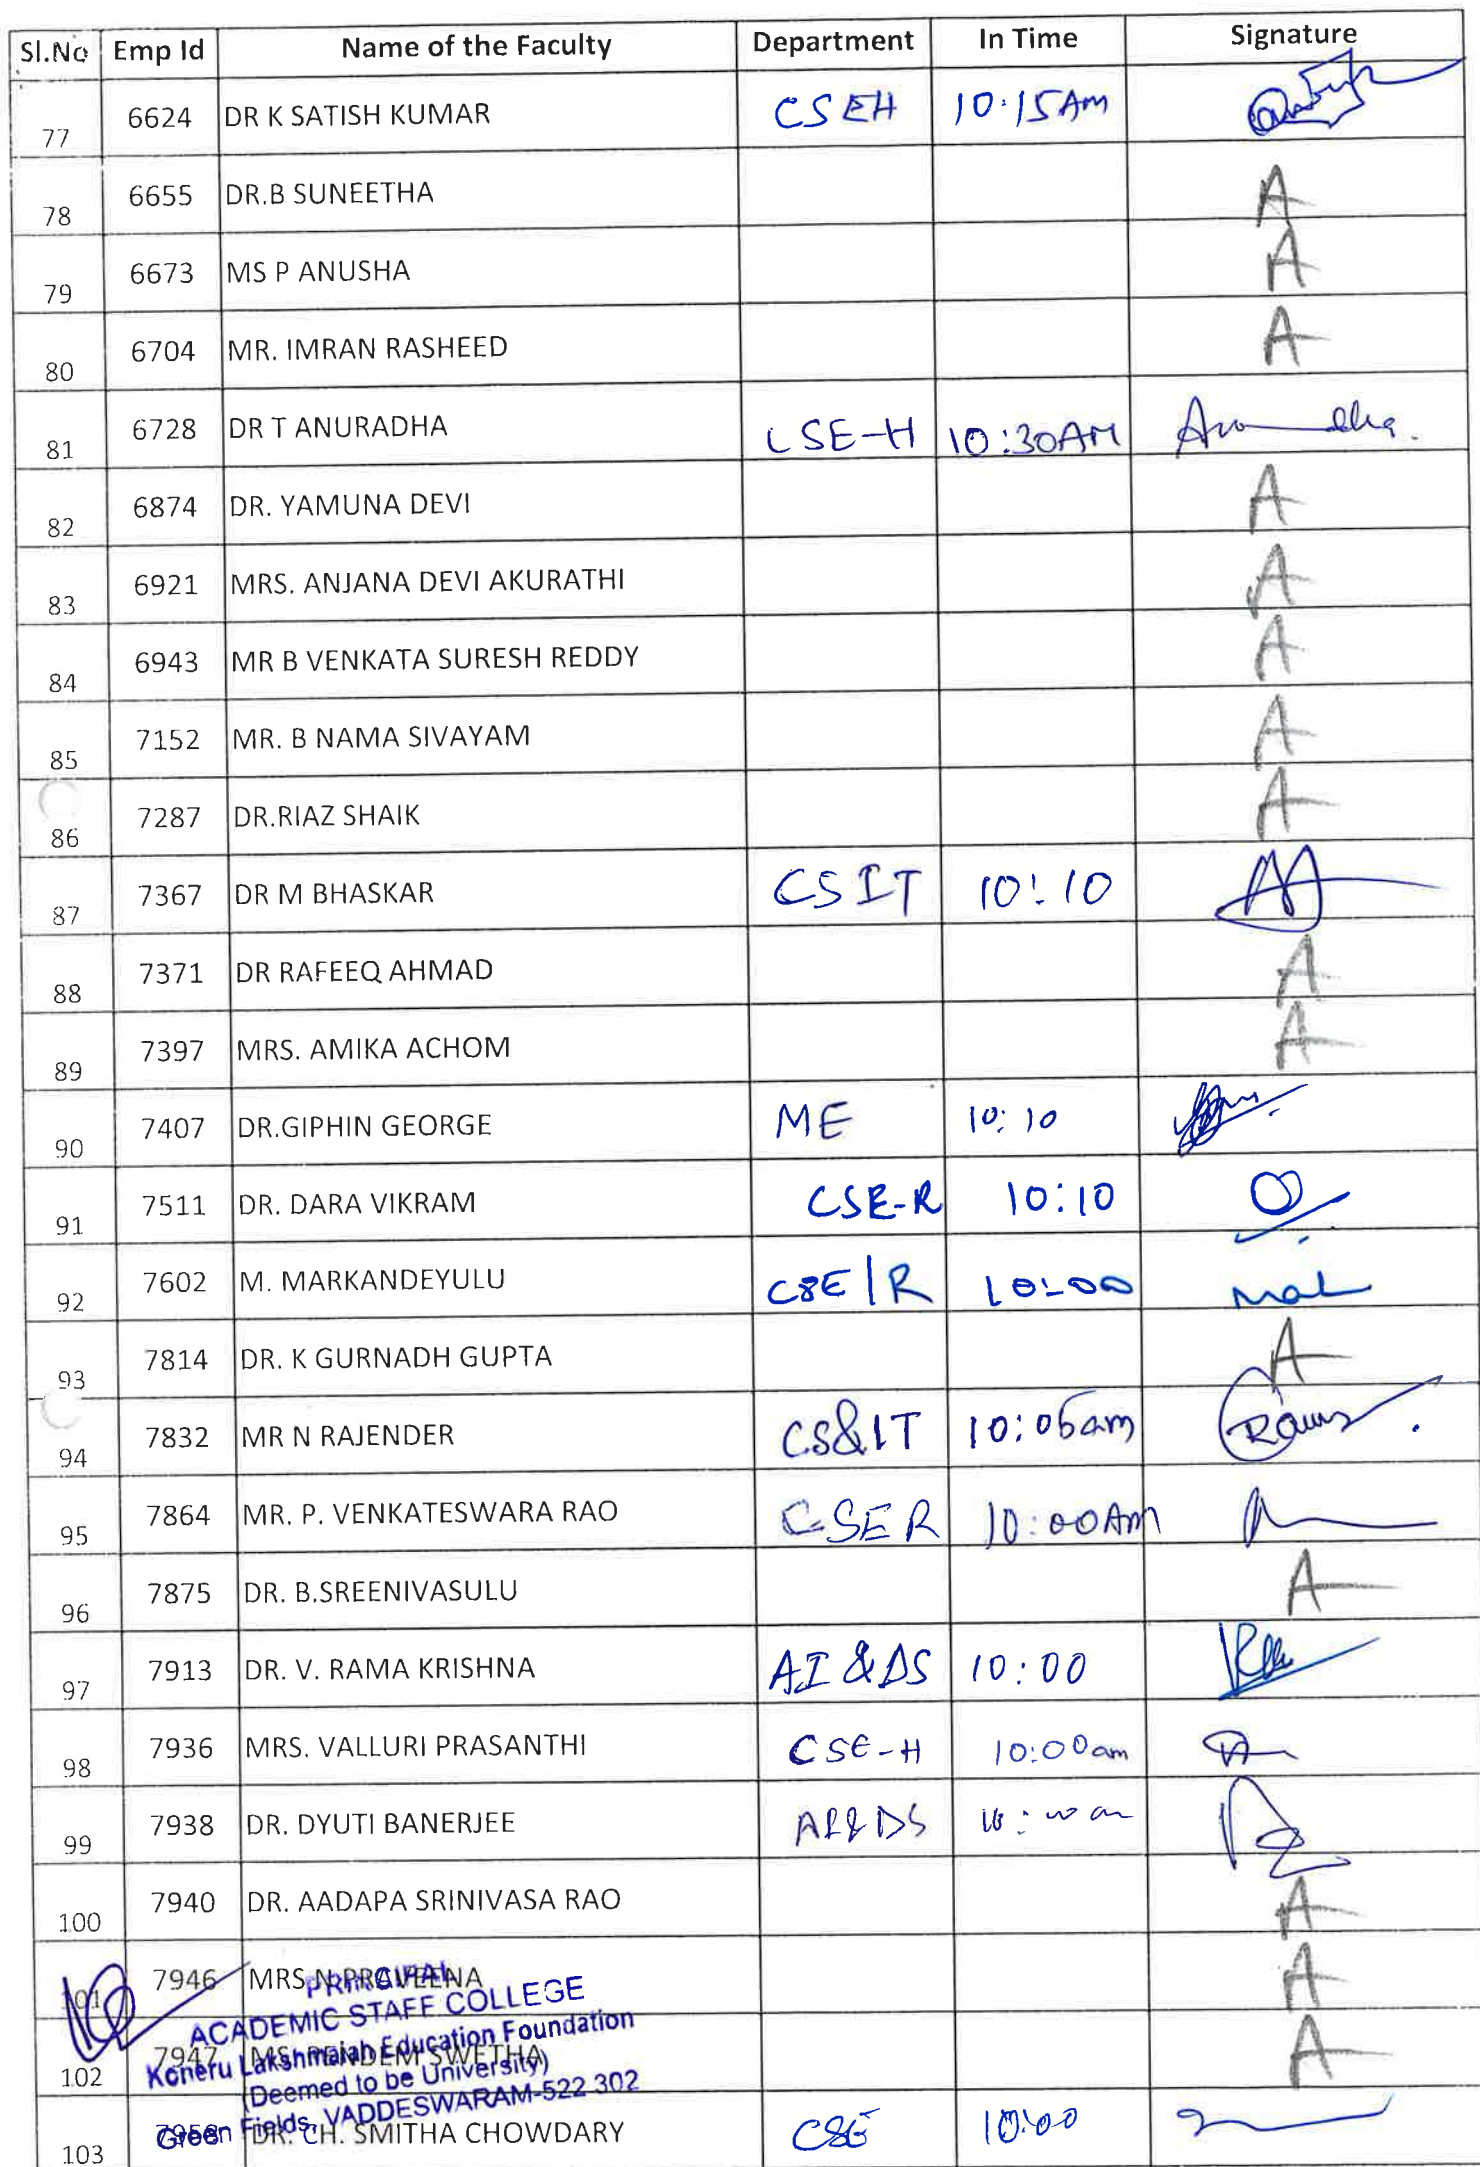 Sl.No Emp Id Name of the Faculty Department In Time Signature
77 6624 DR K SATISH KUMAR CSEH 10:15Am
78 6655 DR.B SUNEETHA A
79 6673 MS P ANUSHA A
80 6704 MR. IMRAN RASHEED A
81 6728 DR T ANURADHA CSE-H 10:30AM
82 6874 DR. YAMUNA DEVI A
83 6921 MRS. ANJANA DEVI AKURATHI A
84 6943 MR B VENKATA SURESH REDDY A
85 7152 MR. B NAMA SIVAYAM A
86 7287 DR.RIAZ SHAIK A
87 7367 DR M BHASKAR CSIT 10:10
88 7371 DR RAFEEQ AHMAD A
89 7397 MRS. AMIKA ACHOM A
90 7407 DR.GIPHIN GEORGE ME 10:10
91 7511 DR. DARA VIKRAM CSE-R 10:10
92 7602 M. MARKANDEYULU CSE/R 10:00
93 7814 DR. K GURNADH GUPTA A
94 7832 MR N RAJENDER CS&IT
95 7864 MR. P. VENKATESWARA RAO CSER 10:00Am
96 7875 DR. B.SREENIVASULU A
97 7913 DR. V. RAMA KRISHNA AI &DS 10:00
98 7936 MRS. VALLURI PRASANTHI CSE-H 10:00am
99 7938 DR. DYUTI BANERJEE AI&DS
100 7940 DR. AADAPA SRINIVASA RAO A
101 7946 MRS.N PRAVEENA A
PRINCIPAL
ACADEMIC STAFF COLLEGE
Koneru Lakshmaiah Education Foundation
102 7947 MS. PENDEM SWETHA A
(Deemed to be University)
Green Fields, VADDESWARAM-522 302
103 DR. CH. SMITHA CHOWDARY CSE 10:00